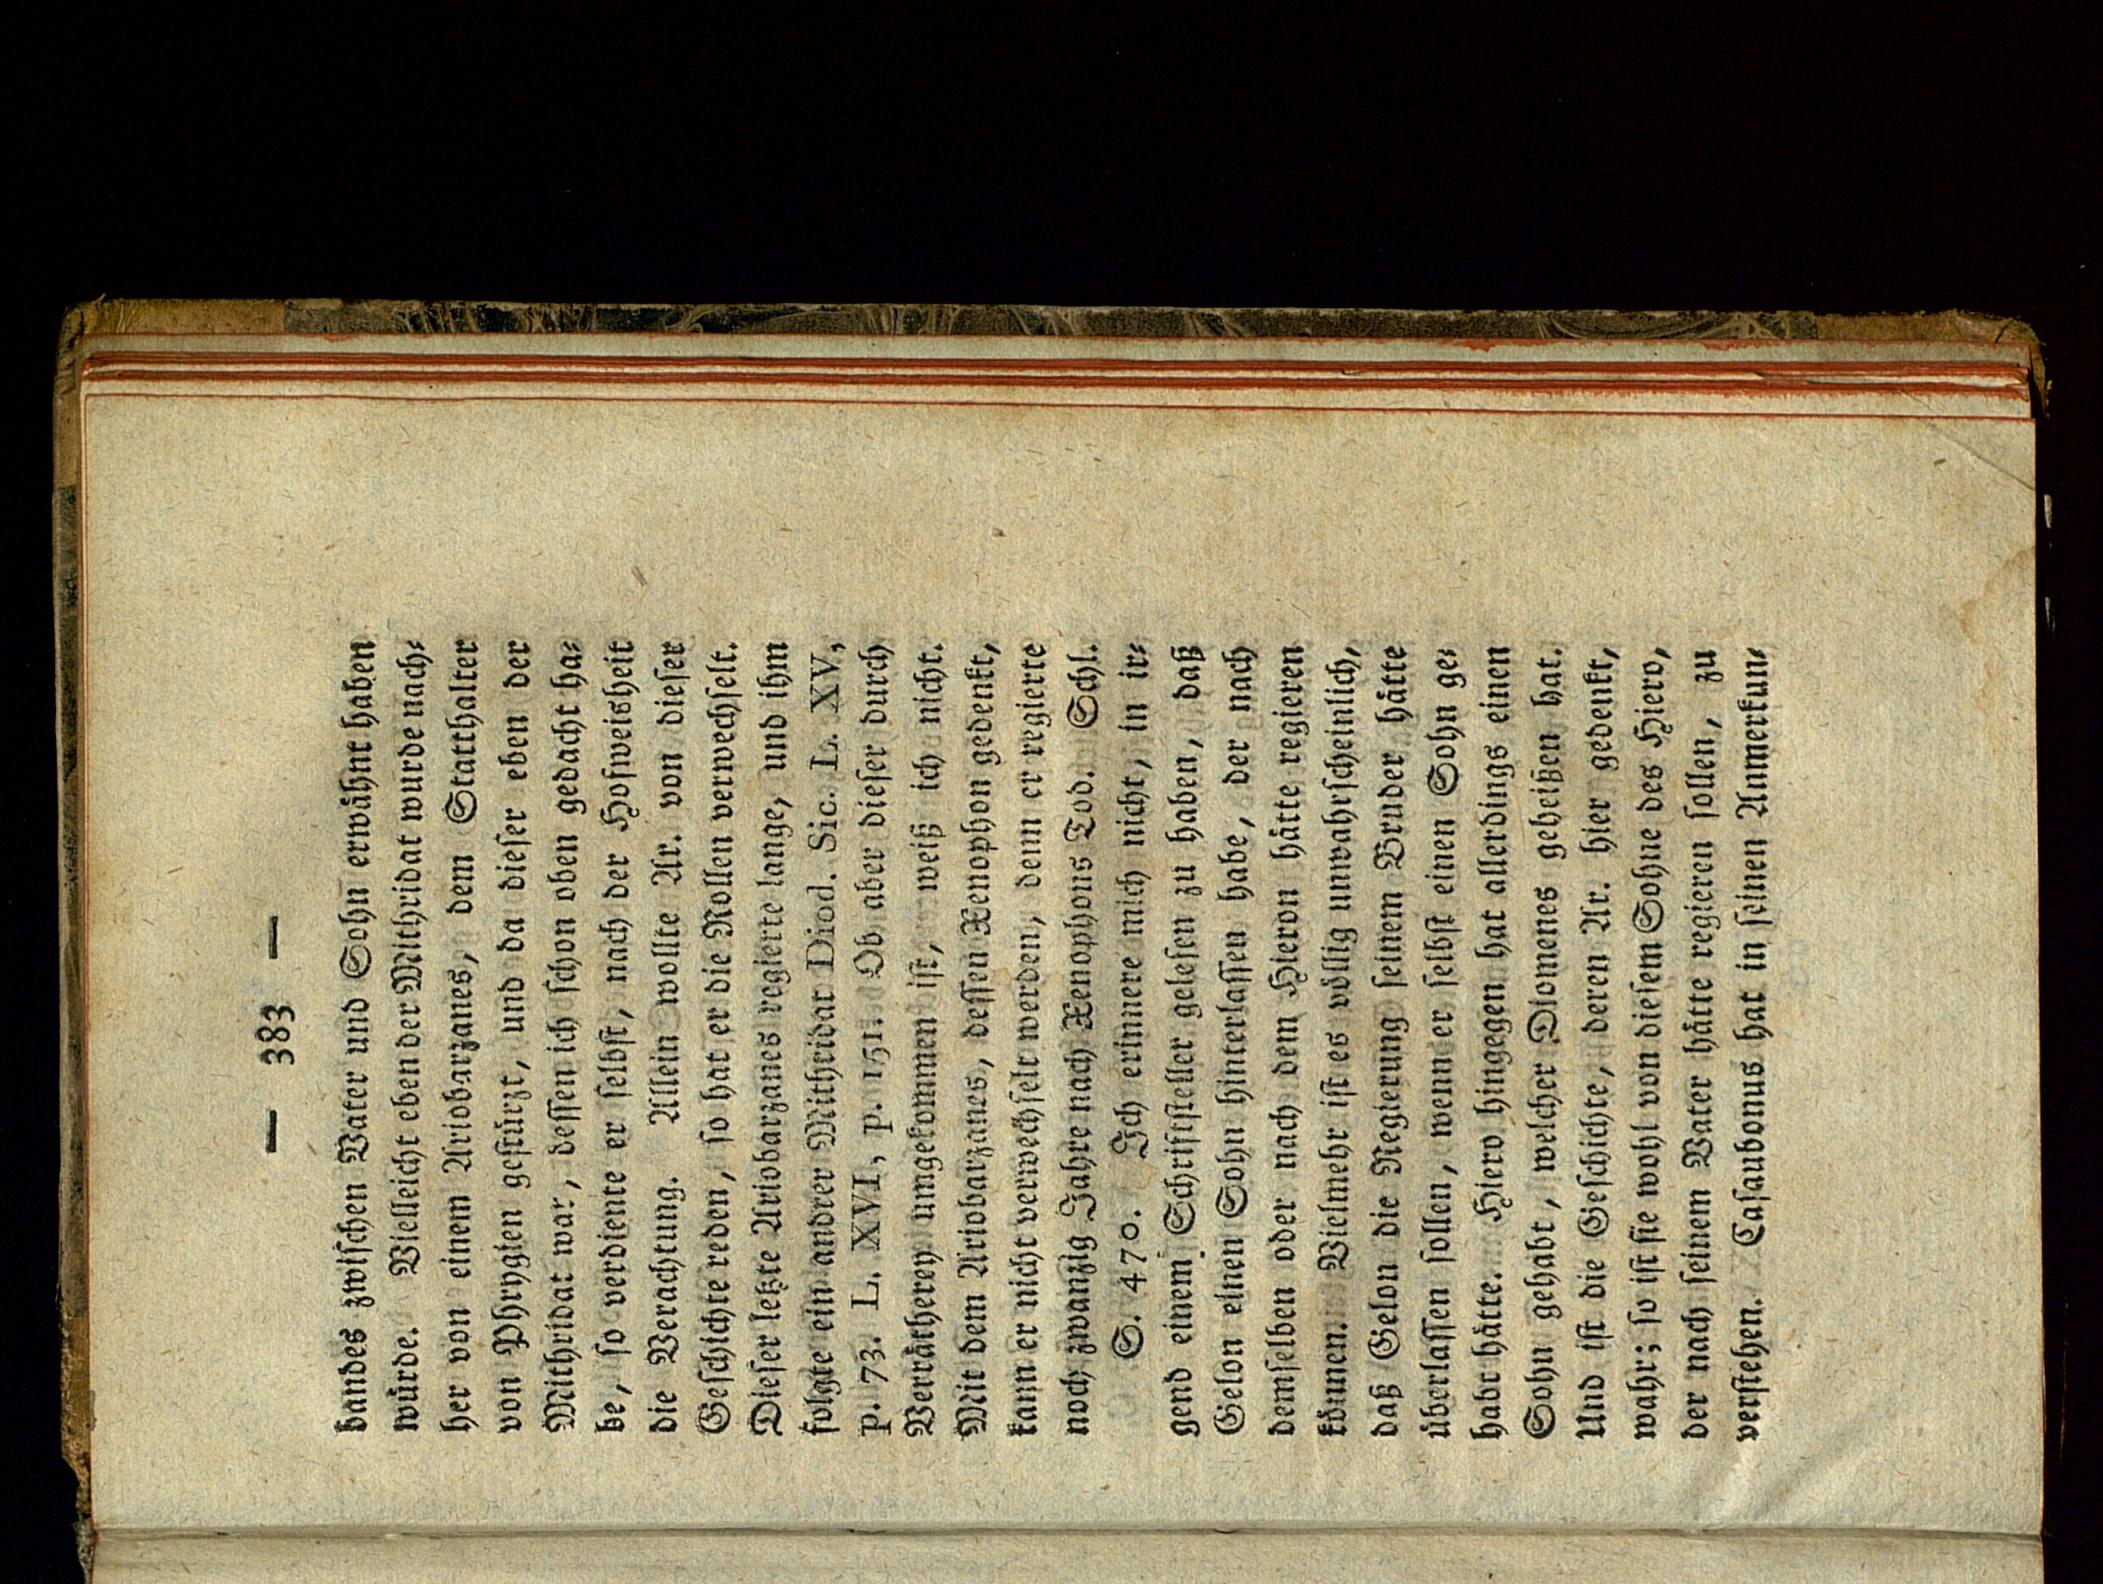 — 383 —
bandes zwiſchen Vater und Sohn erwähnt haben
würde. Vielleicht eben der Mithridat wurde nach⸗
her von einem Ariobarzanes, dem Statthalter
von Phrygien geſtürzt, und da dieſer eben der
Mithridat war, deſſen ich ſchon oben gedacht ha⸗
be, ſo verdiente er ſelbſt, nach der Hofweisheit
die Verachtung. Allein wollte Ar. von dieſer
Geſchichte reden, ſo hat er die Rollen verwechſelt.
Dieſer letzte Ariobarzanes regierte lange, und ihm
folgte ein andrer Mithridat Diod. Sic. L. XV,
p. 73. L. XVI, p. 151. Ob aber dieſer durch
Verrätherey umgekommen iſt, weiß ich nicht.
Mit dem Ariobarzanes, deſſen Xenophon gedenkt,
kann er nicht verwechſelt werden, denn er regierte
noch zwanzig Jahre nach Xenophons Tod. Schl.
S. 470. Ich erinnere mich nicht, in ir⸗
gend einem Schriftſteller geleſen zu haben, daß
Gelon einen Sohn hinterlaſſen habe, der nach
demſelben oder nach dem Hieron hätte regieren
können. Vielmehr iſt es völlig unwahrſcheinlich,
daß Gelon die Regierung ſeinem Bruder hätte
überlaſſen ſollen, wenn er ſelbſt einen Sohn ge⸗
habt hätte. Hiero hingegen hat allerdings einen
Sohn gehabt, welcher Diomenes geheißen hat.
Und iſt die Geſchichte, deren Ar. hier gedenkt,
wahr; ſo iſt ſie wohl von dieſem Sohne des Hiero,
der nach ſeinem Vater hätte regieren ſollen, zu
verſtehen. Caſaubonus hat in ſeinen Anmerkun⸗